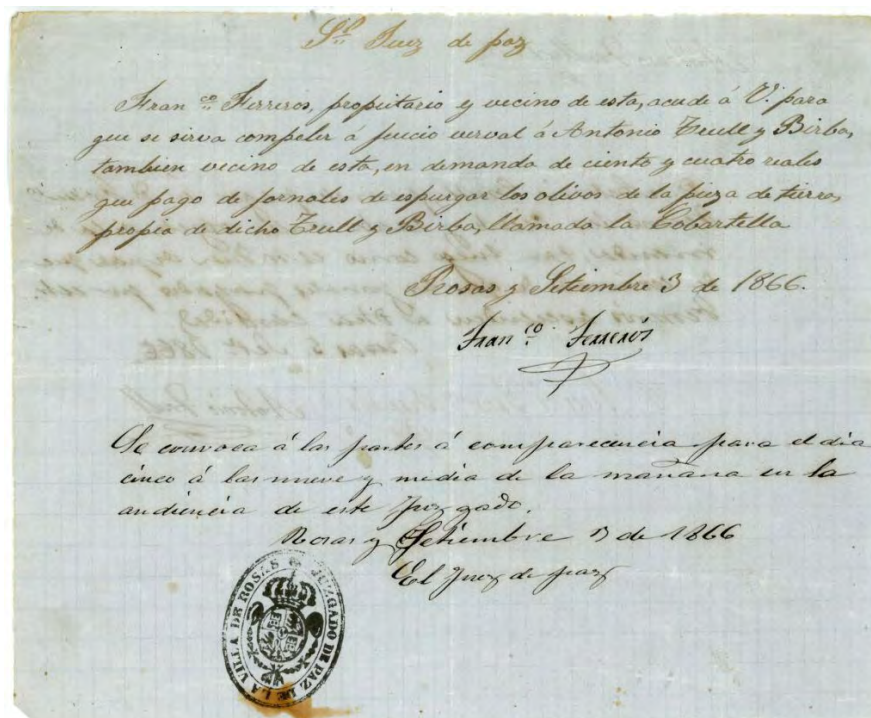 Sr. Juez de paz
Franco. Ferreros, propietario y vecino de esta, acude á V. para
que se sirva compeler a juicio verval á Antonio Trull y Birba,
tambien vecino de esta, en demanda de ciento y cuatro reales
que pago de jornales de espurgar los olivos de la pieza de tierra,
propia de dicho Trull y Birba, llamada la Cobartella
Rosas y Setiembre 3 de 1866.
Franco. Ferreros
Se convoca á las partes á comparecencia para el dia
cinco á las nueve y media de la mañana en la
audiencia de este Juzgado.
Rosas y Setiembre 3 de 1866
El Juez de paz
JUZGADO DE PAZ DE LA VILLA DE ROSAS